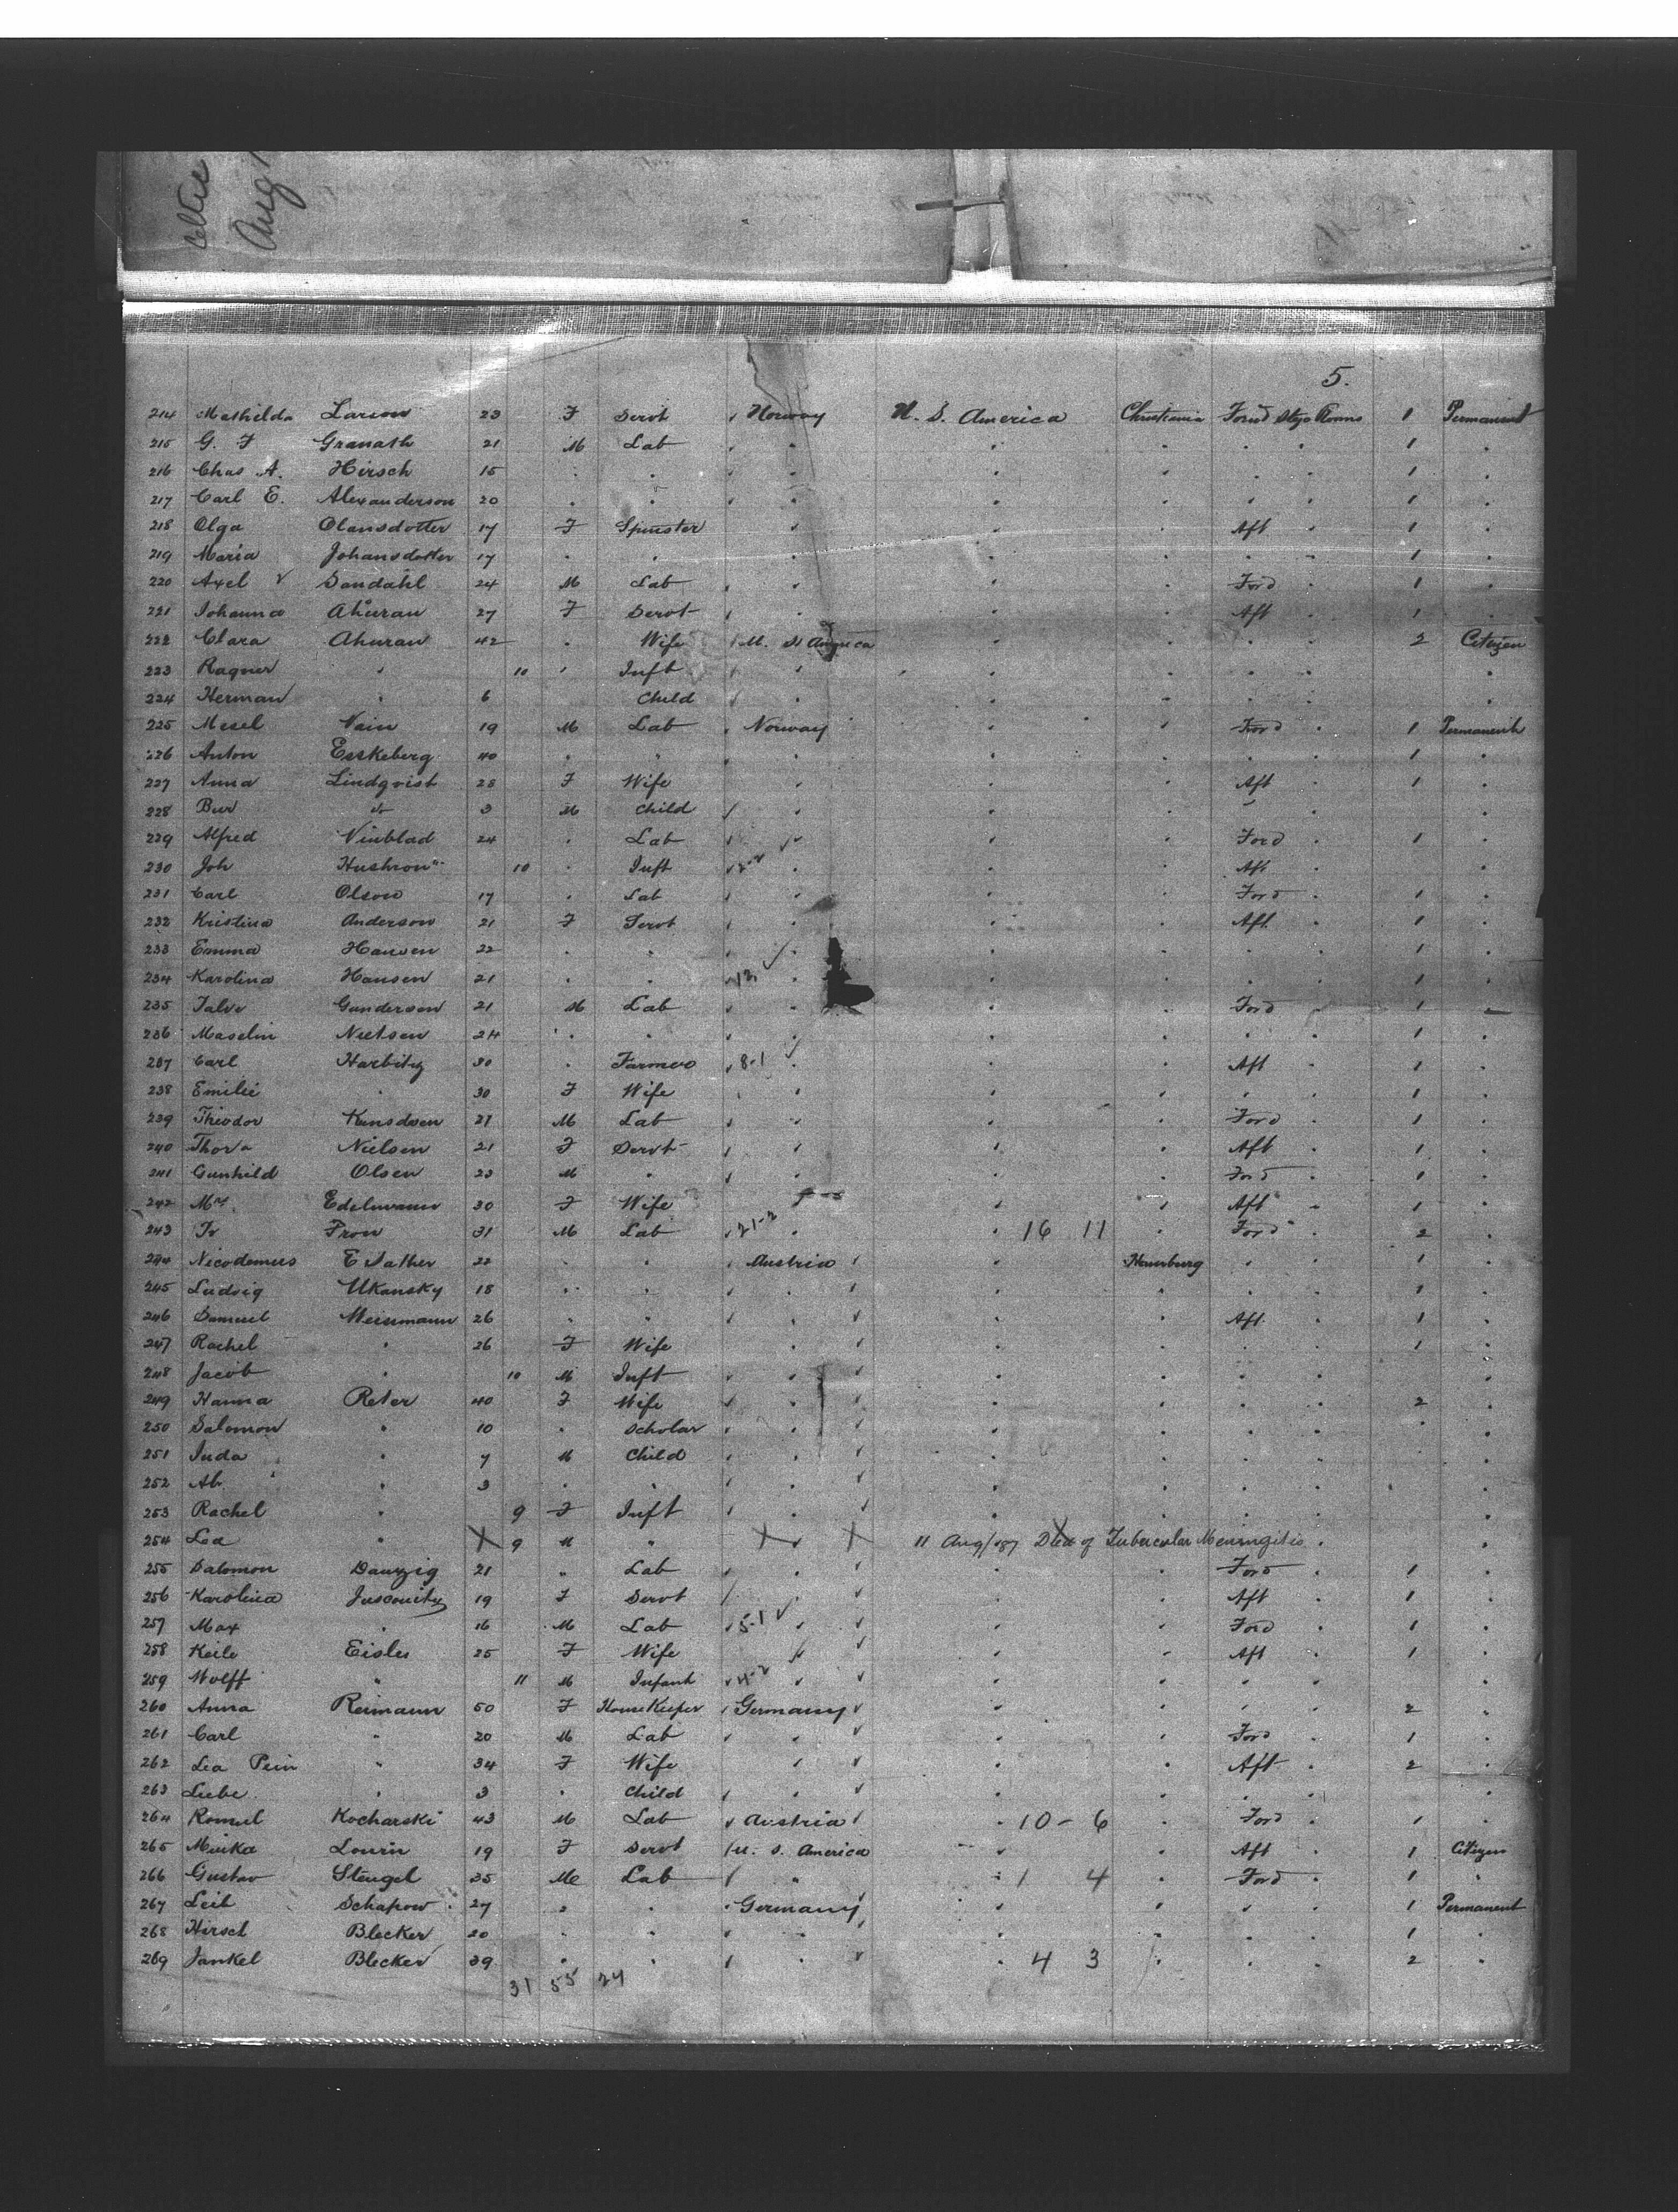 Celtic
Aug
5.
214 Mathilda Larson 23 F Servt Norway U. S. America Christiania Forwd Stge Rooms 1 Permanent
215 G. F Granath 21 M Lab 1
216 Chas A. Hirsch 15 1
217 Carl E. Alexanderson 20 1
218 Olga Olansdotter 17 F Spinster Aft 1
219 Maria Johansdotter 17 1
220 Axel V Sandahl 24 M Lab Ford 1
221 Johanna Ahuran 27 F Servt Aft 1
222 Clara Ahuran 42 Wife U. S. America 2 Citizen
223 Ragner " 10 Inft
224 Herman " 6 Child
225 Mesel Nain 19 M Lab Norway Ford 1 Permanent
226 Anton Esskeberg 40 1
227 Anna Lindqvist 28 F Wife Aft 1
228 Bur do 3 M Child
229 Alfred Vinblad 24 Lab Ford 1
230 Joh 10 Inft Aft
231 Carl Olson 17 Lab Ford 1
232 Kristina Anderson 21 F Servt Aft 1
233 Emma Hansen 22 1
234 Karolina Hansen 21 1
235 Talve Gundersen 21 M Lab Ford 1
236 Maselin Nielsen 24 1
237 Carl Harbitz 30 Farmer 8-1 Aft 1
238 Emilie " 30 F Wife 1
239 Theodor 21 M Lab Ford 1
240 Thora Nielsen 21 F Servt Aft 1
241 Gunhild Olsen 23 M " Ford 1
242 Mrs. Edelmann 30 F Wife Aft 1
243 Fron 31 M Lab 21-2 16 11 Ford 2
244 Nicodemus E Sather 22 Austria Hamburg 1
245 Ludvig Ukansky 18 1
246 Samuel Weinmann 26 Aft 1
247 Rachel " 26 F Wife 1
248 Jacob " 10 M Inft
249 Hanna Reter 40 F Wife 2
250 Salomon " 10 Scholar
251 Juda " 7 M Child
252 Ab. " 3
253 Rachel " 9 F Inft
254 Lea " 9 M " 11 Aug/87 Died of Tubercular Meningitis
255 Salomon Danzig 21 " Lab Ford 1
256 Karolina 19 F Servt Aft 1
257 Max " 16 M Lab 5-1 Ford 1
258 Keile Eisler 25 F Wife Aft 1
259 Wolff " 11 M Infant 4-2
260 Anna Reimann 50 F HouseKeeper Germany 2
261 Carl " 20 M Lab Ford 1
262 Lea Pein " 34 F Wife Aft 2
263 Liebe " 3 Child
264 Kocharski 43 M Lab Austria 10-6 Ford 1
265 Minka Lourin 19 F Servt U. S. America Aft 1 Citizen
266 Gustav Stengel 35 M Lab " 1 4 Ford 1
267 Leib Schapow 27 Germany 1 Permanent
268 Hirsch Blecker 20 1
269 Jankel Blecker 39 4 3 2
31 55 24